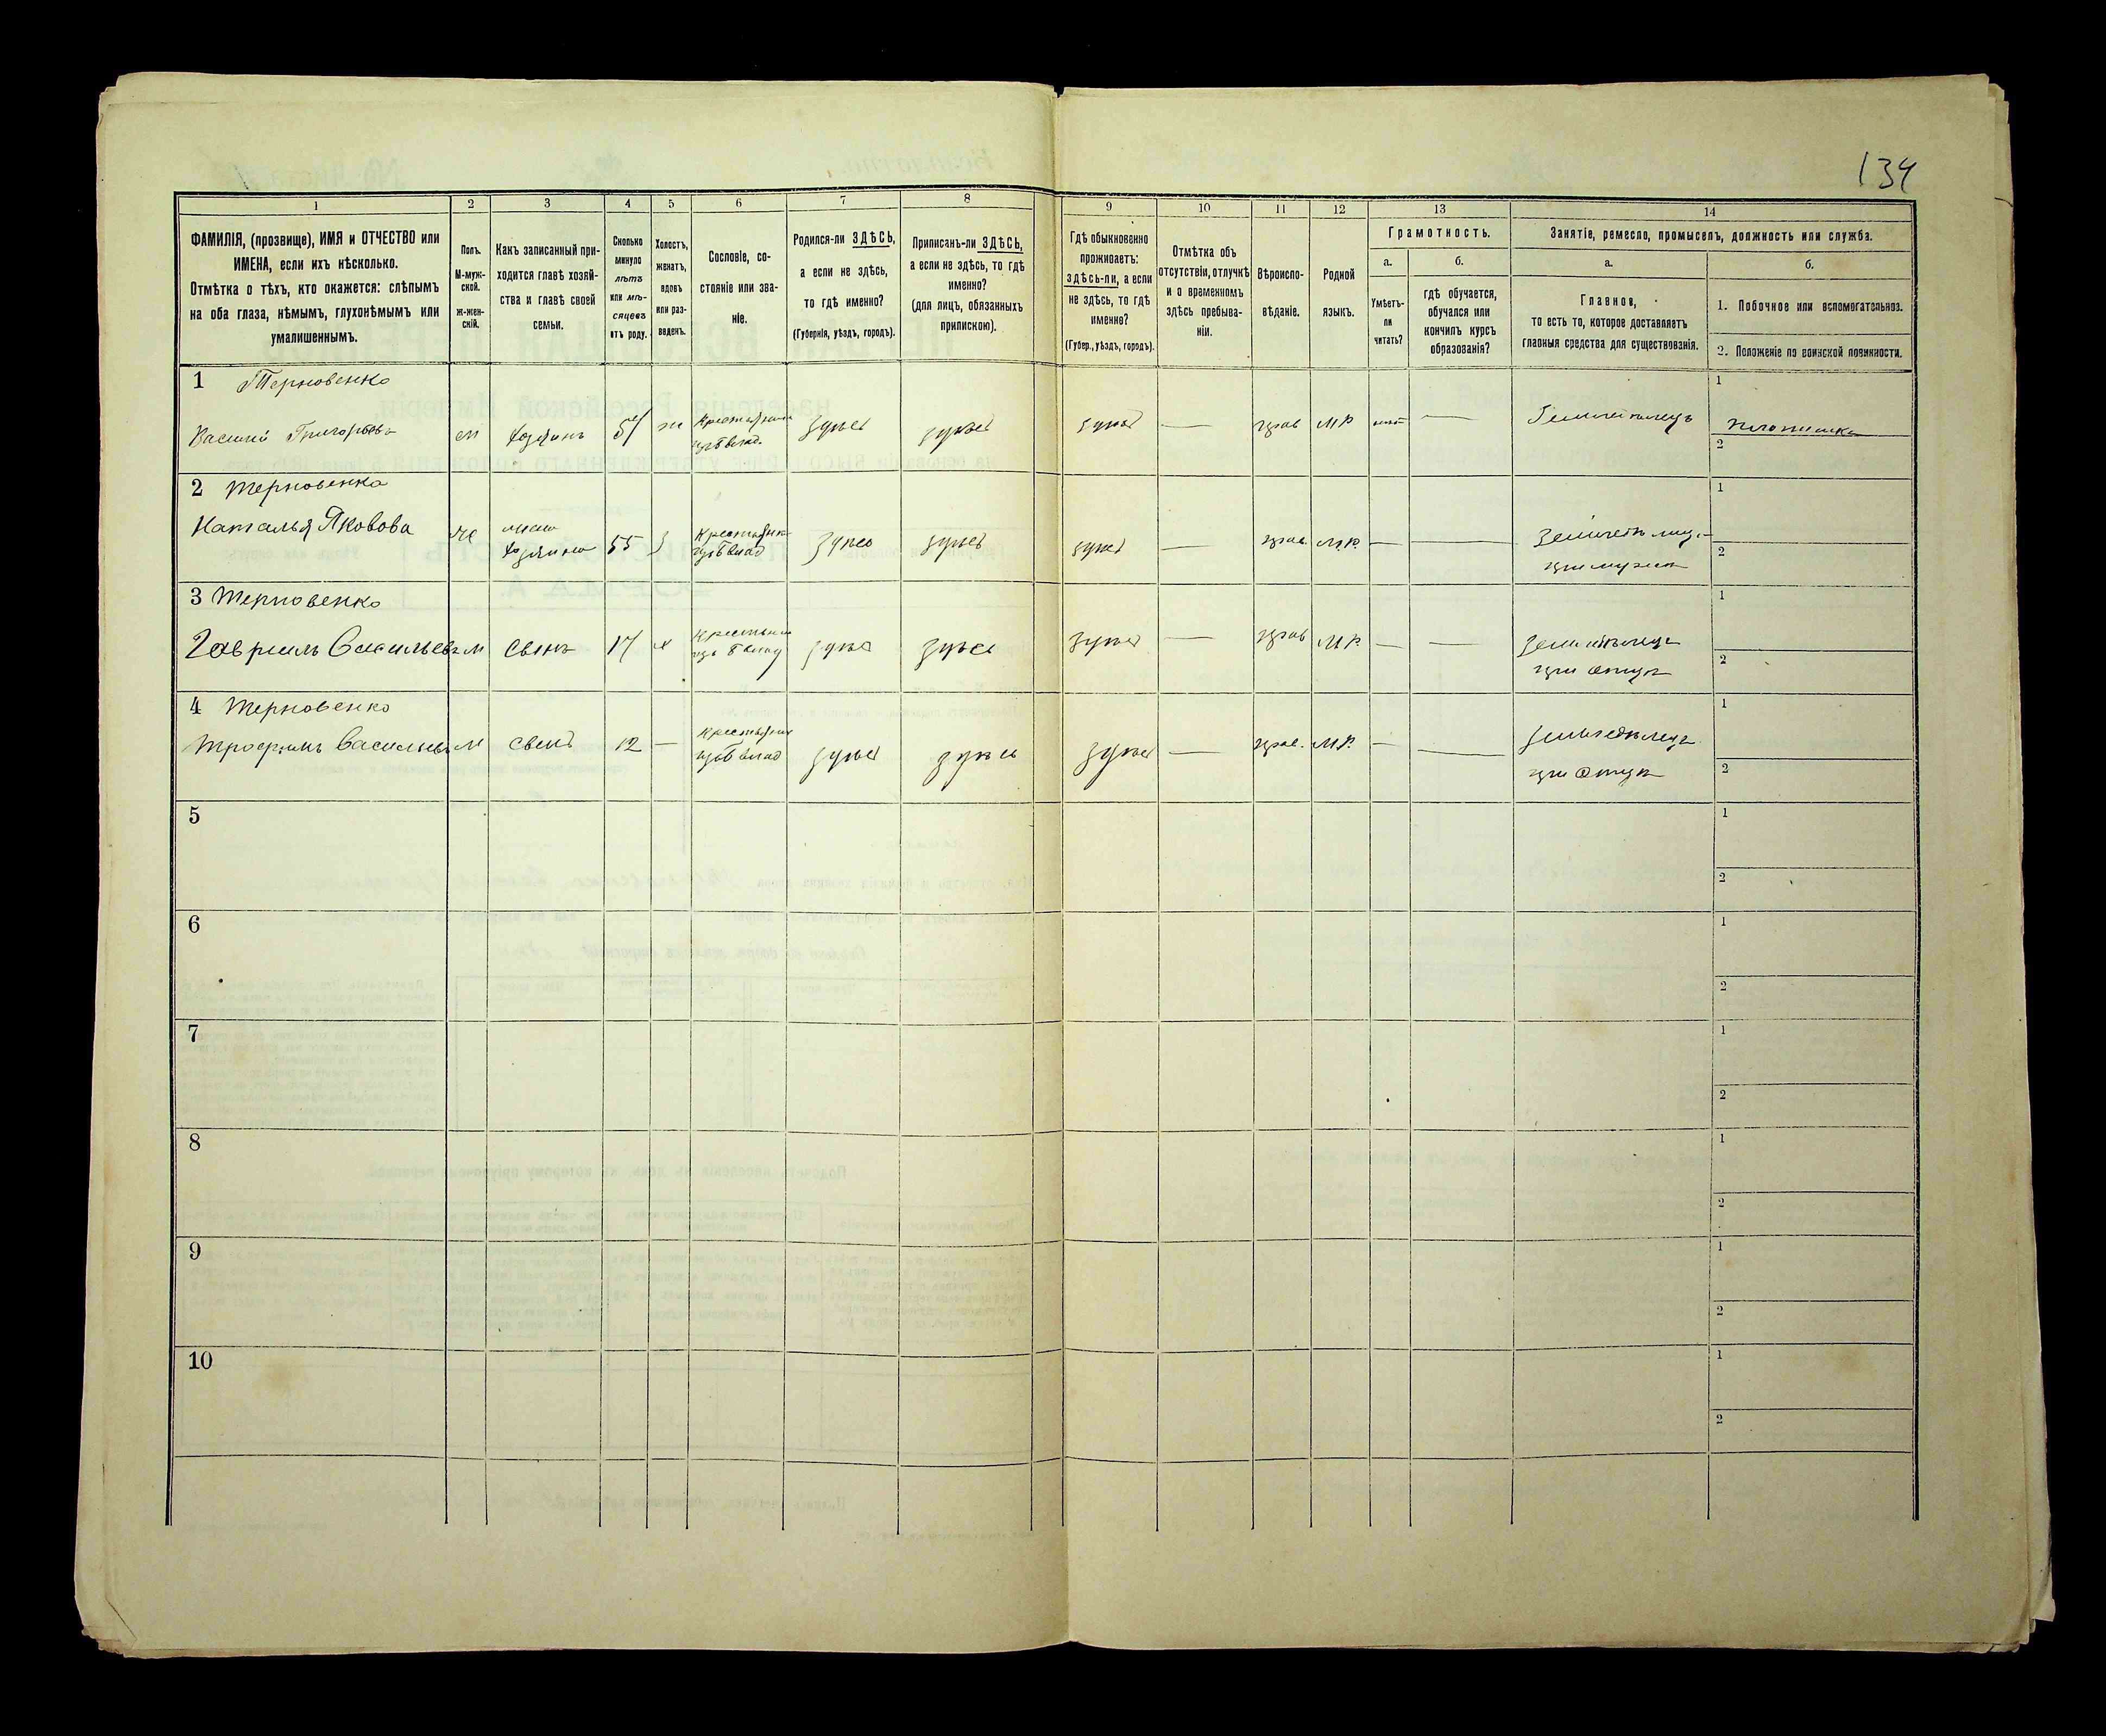 134
1
2
3
4
5
6
7
8
9
10
11
12
13
14
ФАМИЛІЯ, (прозвище), ИМЯ и ОТЧЕСТВО или
ИМЕНА, если ихъ нѣсколько.
Отмѣтка о тѣхъ, кто окажется: слѣпымъ
на оба глаза, нѣмымъ, глухонѣмымъ или
умалишеннымъ.
Полъ.
М-муж-
ской.
Ж-жен-
скій.
Какъ записанный при-
ходится главѣ хозяй-
ства и главѣ своей
семьи.
Сколько
минуло
лѣтъ
или мѣ-
сяцевъ
отъ роду.
Холостъ,
женатъ,
вдовъ
или раз-
веденъ.
Сословіе, со-
стояніе или зва-
ніе.
Родился-ли ЗДѢСЬ,
а если не здѣсь,
то гдѣ именно?
(Губернія, уѣздъ, городъ).
Приписанъ-ли ЗДѢСЬ,
а если не здѣсь, то гдѣ
именно?
(для лицъ, обязанныхъ
припискою).
Гдѣ обыкновенно
проживаетъ:
здѣсь-ли, а если
не здѣсь, то гдѣ
именно?
(Губер., уѣздъ, городъ).
Отмѣтка объ
отсутствіи, отлучкѣ
и о временномъ
здѣсь пребыва-
ніи.
Вѣроиспо-
вѣданіе.
Родной
языкъ.
Грамотность.
а.
б.
Умѣетъ-
ли
читать?
гдѣ обучается,
обучался или
кончилъ курсъ
образованія?
Занятіе, ремесло, промыселъ, должность или служба.
а.
б.
Главное,
то есть то, которое доставляетъ
главныя средства для существованія.
1. Побочное или вспомогательное.
2. Положеніе по воинской повинности.
1 Терновенко
Василій Григорьевъ
м
хозяинъ
54
ж
здѣсь
здѣсь
здѣсь
—
прав
МР
нѣт
—
Земледѣлецъ
1
2
2 Терновенко
Наталья Яковова
ж
жена
хозяина
55
з
здѣсь
здѣсь
здѣсь
—
прав
М.Р.
—
—
при мужѣ
1
2
3 Терновенко
Гавріилъ Васильевъ
м
сынъ
17
х
здѣсь
здѣсь
здѣсь
—
прав
МР.
—
—
земледѣлецъ
при отцѣ
1
2
4 Терновенко
Трофимъ Васильевъ
м
сынъ
12
—
здѣсь
здѣсь
здѣсь
—
прав.
МР.
—
—
земледѣлецъ
при отцѣ
1
2
5
1
2
6
1
2
7
1
2
8
1
2
9
1
2
10
1
2